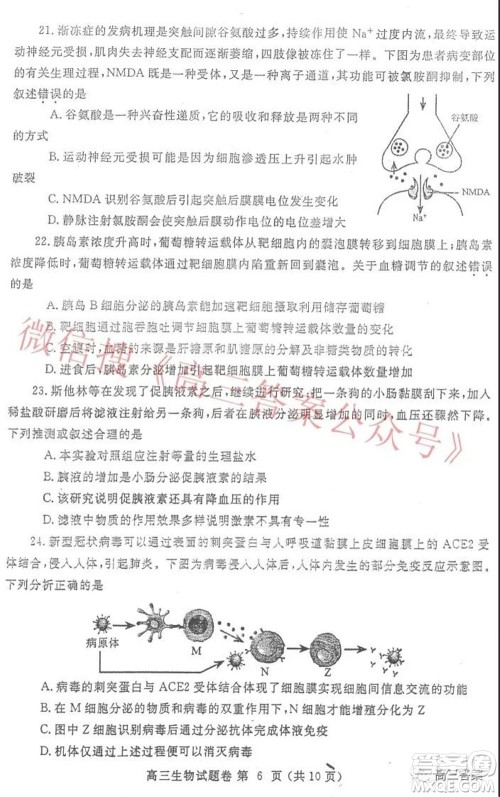 21. 渐冻症的发病机理是突触间隙谷氨酸过多，持续作用使 Na⁺过度内流，最终导致运
动神经元受损，肌肉失去神经支配而逐渐萎缩，四肢像被冻住了一样。下图为患者病变部位
的有关生理过程，NMDA 既是一种受体，又是一种离子通道，其功能可被氯胺酮抑制，下列
叙述错误的是
A. 谷氨酸是一种兴奋性递质，它的吸收和释放是两种不同
的方式
B. 运动神经元受损可能是因为细胞渗透压上升引起水肿
破裂
C. NMDA 识别谷氨酸后引起突触后膜膜电位发生变化
D. 静脉注射氯胺酮会使后膜动作电位的变化幅度增大
谷氨酸
NMDA
Na⁺
22. 胰岛素浓度升高时，葡萄糖转运载体从靶细胞内的囊泡膜转移到细胞膜上；胰岛素
浓度下降时，葡萄糖转运载体从靶细胞膜内陷重新回到囊泡。关于血糖调节的叙述错误的是
A. 胰岛 B 细胞分泌的胰岛素能加速靶细胞摄取利用储存葡萄糖
B. 靶细胞通过胞吞胞吐调节细胞膜上葡萄糖转运载体的数量
C. 空腹时，血糖的来源是肝糖原的分解及非糖类物质的转化
D. 进食后，胰岛素分泌增加引起靶细胞膜上葡萄糖转运载体数量增加
23. 斯他林等在发现了促胰液素之后，继续进行研究，把一条狗的小肠黏膜刮下来，加入
稀盐酸研磨后将滤液注射给另一条狗，后者在胰液分泌明显增加的同时，血压还骤然下降。
下列推测或叙述合理的是
A. 本实验对照组应注射等量的生理盐水
B. 胰液的增加是小肠分泌促胰液素的结果
C. 该研究说明促胰液素还具有降血压的作用
D. 滤液中含有不止一种生物活性物质
24. 新型冠状病毒可以通过表面的刺突蛋白与人呼吸道黏膜上皮细胞膜上的 ACE2 受
体结合，侵入人体，引起肺炎。下图为病毒侵入人体后，在人体内发生的部分免疫反应示意图。
下列分析正确的是
病原体
M
N
Z
A. 病毒的刺突蛋白与 ACE2 受体结合体现了细胞膜实现细胞间信息交流的功能
B. 在 M 细胞分泌的物质和病毒的刺激下，N 细胞能增殖分化
C. 图中 Z 细胞可以通过分泌抗体完成对病毒的彻底清除
D. 机体仅通过图示过程即可消灭病毒
高三生物试题卷 第 6 页（共 10 页）
微信搜《高三答案公众号》
高三答案